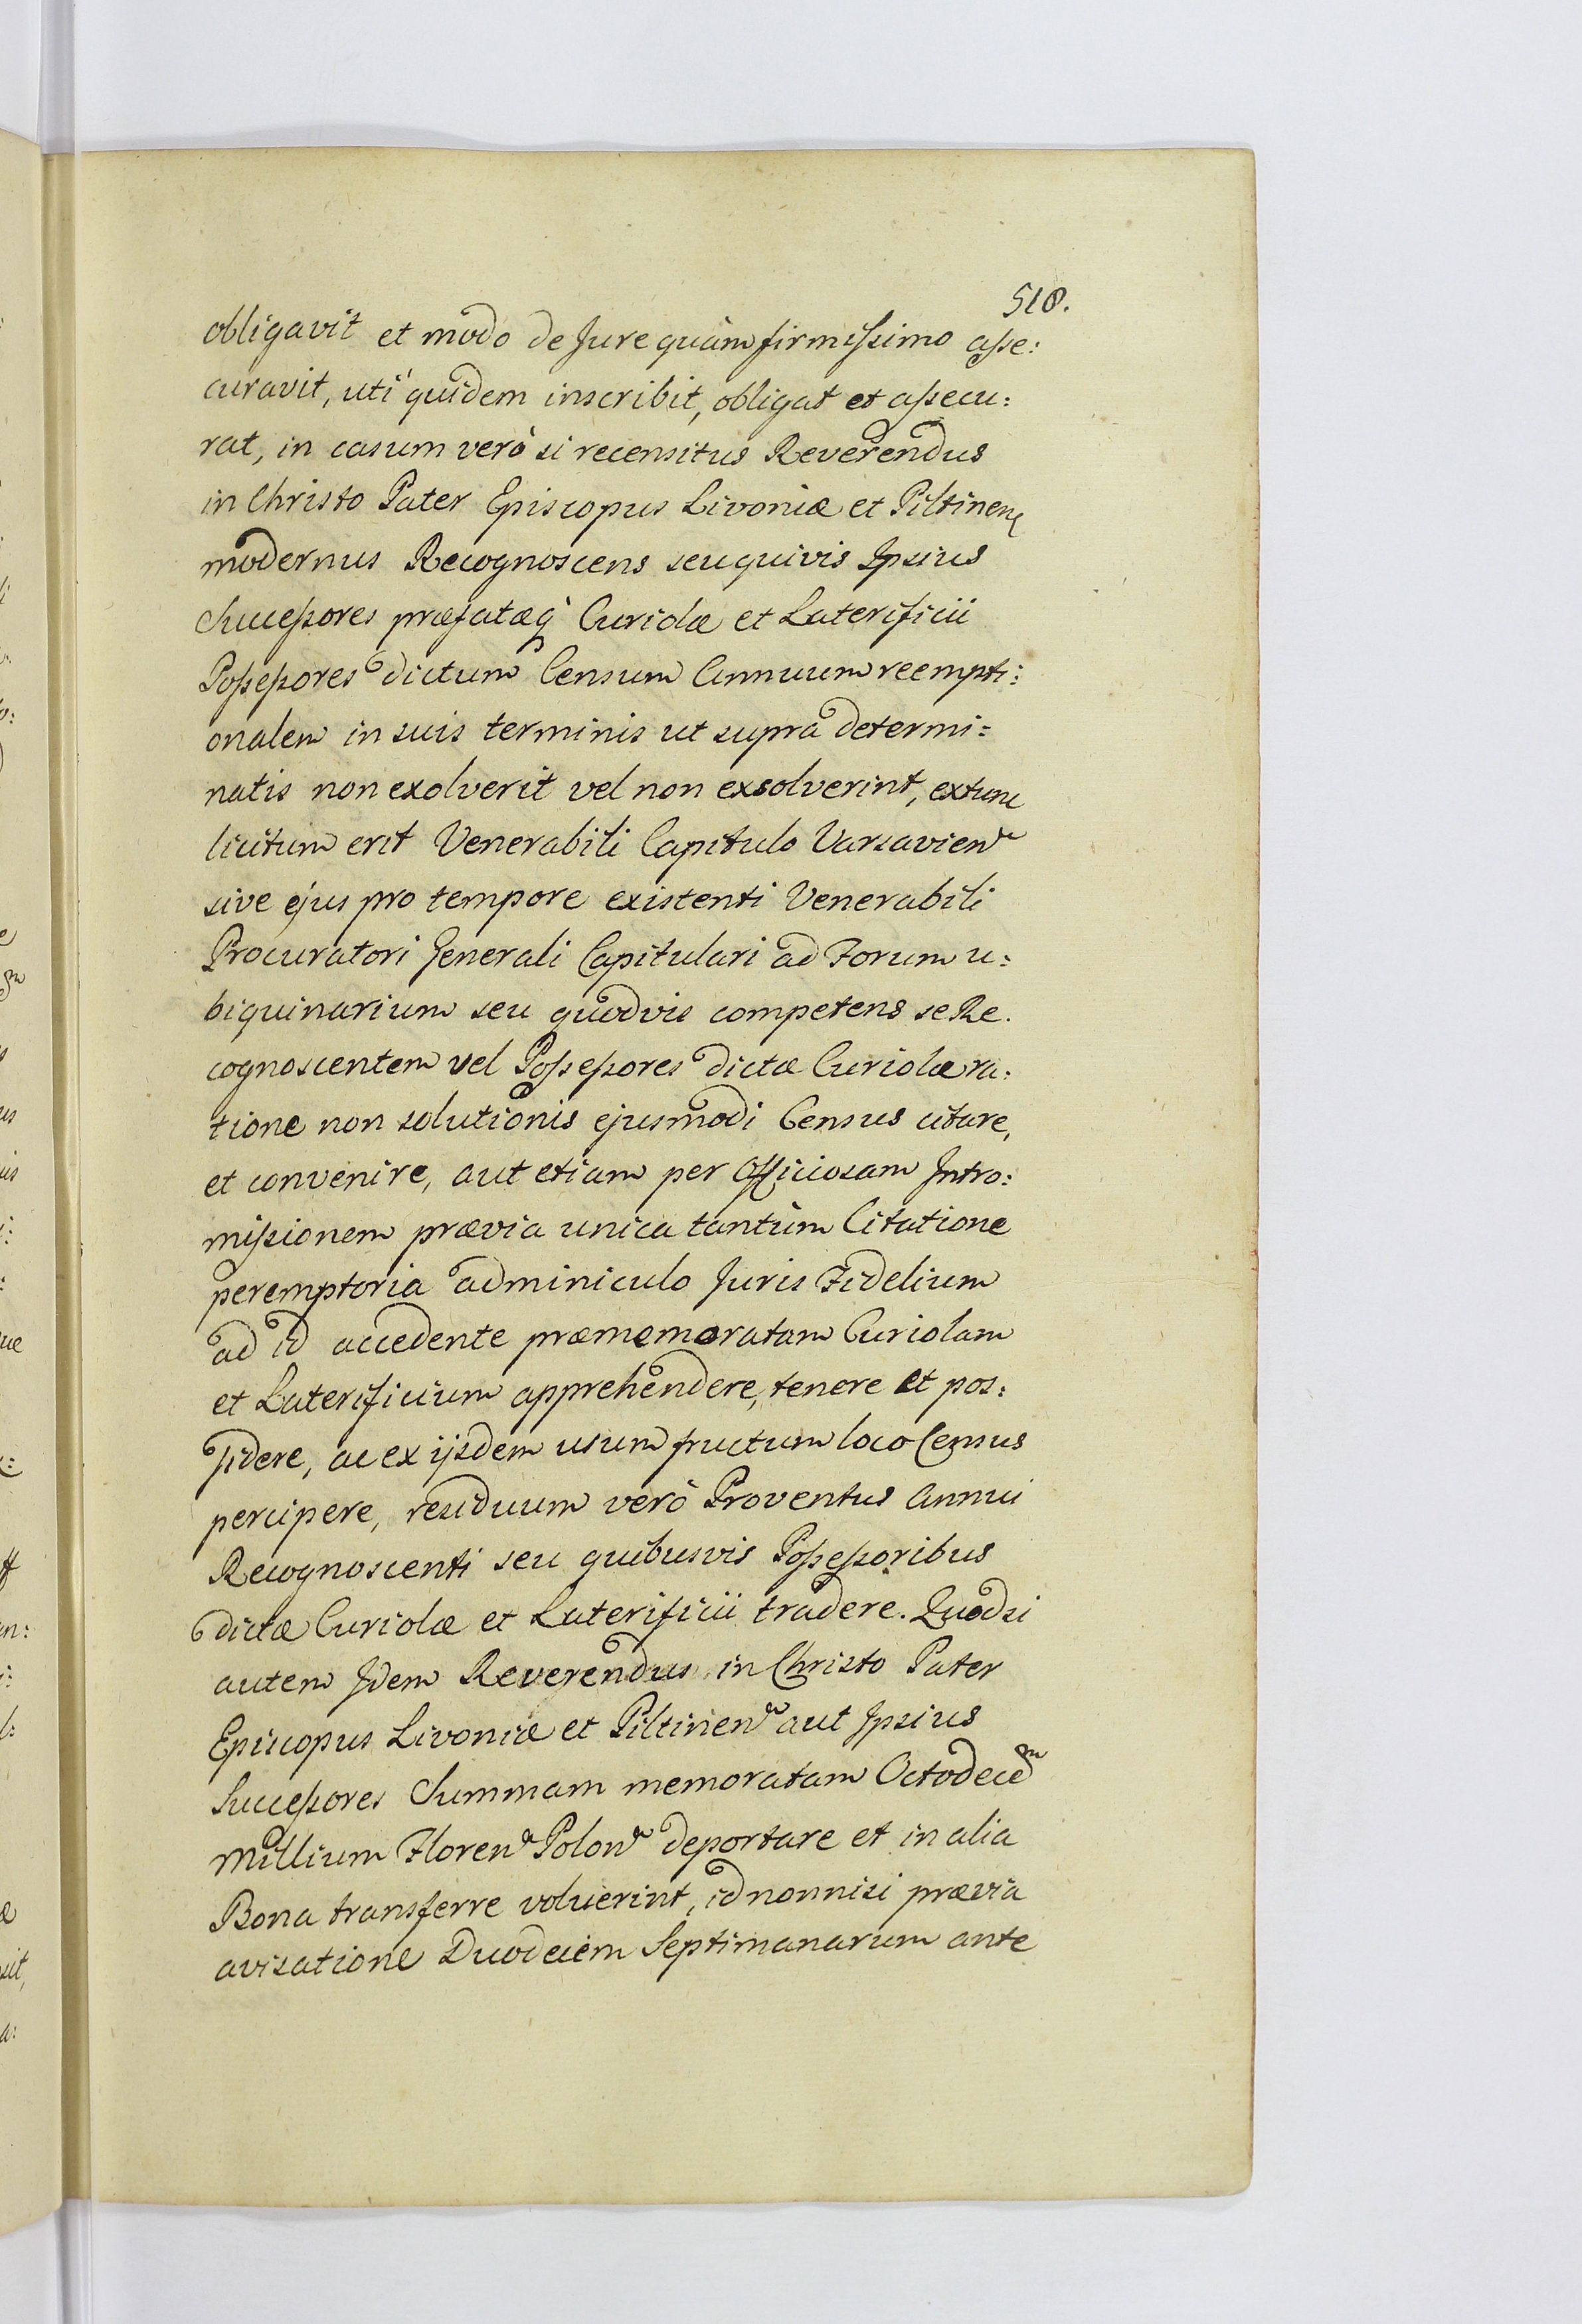 518.
obligavit et modo de Jure quàm firmissimo asse:
curavit, uti quidem inscribit, obligat et assecu:
rat, in casum verò si recensitus Reverendus
in Christo Pater Episcopus Livoniæ et Piltinen
modernus Recognoscens seu quivis Ipsius
Successores præfatæq Curiolæ et Laterificii
Possessores dictum Censum Annuum reempti:
onalem in suis terminis ut supra determi:
natis non exolverit vel non exsolverint, extunc
licitum erit Venerabili Capitulo Varsavien
sive ejus pro tempore existenti Venerabili
Procuratori Generali Capitulari ad Forum u:
biquinarium seu quodvis competens se Re.
cognoscentem vel Possessores dictæ Curiolæ ra:
tione non solutionis ejusmodi Census citare,
et convenire, aut etiam per Officiosam Intro:
missionem prævia unica tantùm Citatione
peremptoria adminiculo Juris Fidelium
ad id accedente præmemoratam Curiolam
et Laterificium apprehendere, tenere et pos:
sidere, ac ex ijsdem usum fructum loco Census
percipere, residuum verò Proventus Annui
Recognoscenti seu quibusvis Possessoribus
dictæ Curiolæ et Laterificii tradere. Quodsi
autem Idem Reverendus in Christo Pater
Episcopus Livoniæ et Piltinen aut Ipsius
Successores Summam memoratam Octodecem
Millium Floren Polon deportare et in alia
Bona transferre voluerint, id nonnisi prævia
avisatione Duodecim Septimanarum ante